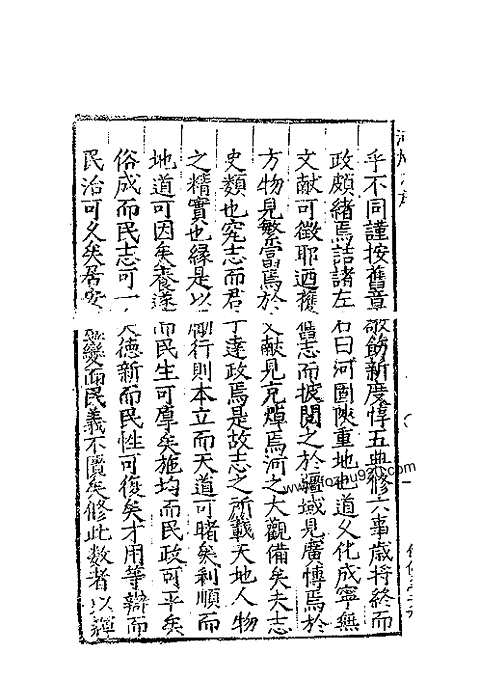 乎不同謹按舊章敬飭新度惇五典修六事歲將終而
政頗緒焉詰諸左右曰河固陝重地也道乂化成寧無
文獻可徵耶迺獲舊志而披閱之於疆域見廣愽焉於
方物見繁富焉於文獻見充燁焉河之大觀備矣夫志
史類也究志而君子達政焉是故志之所載天地人物
之精實也緣是以制行則本立而天道可睹矣利順而
地道可因矣養遂而民生可厚矣施均而民政可平矣
俗成而民志可一矣德新而民性可復矣才用等辯而
民治可久矣居安慮變而民義不匱矣修此數者以經
www.fozhu920.com